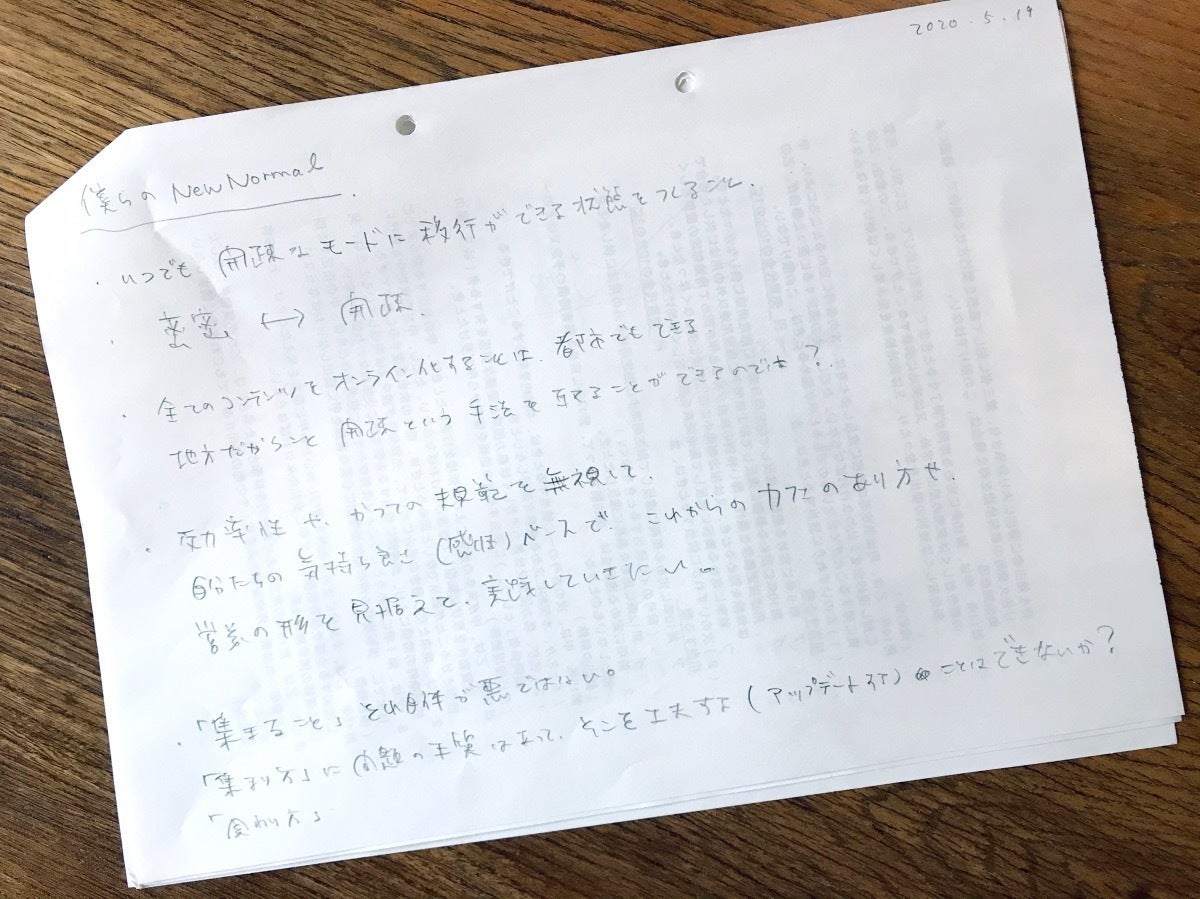 2020.5.19
僕らの New Normal
・いつでも 開疎なモードに移行ができる状態をつくること。
・密密 ⟷ 開疎.
・全てのコンテンツをオンライン化することは、都市でもできる.
地方だからこそ 開疎という手法を取ることができるのでは?
・効率性や、かつての規範を無視して、
自分たちの気持ち良さ(感性)ベースで、これからのカフェのあり方や、
営業の形を見据えて、実践していきたい。
・「集まること」それ自体が悪ではない。
「集まり方」に問題の本質はあって、そこを工夫する(アップデートする)ことはできないか?
「交わり方」